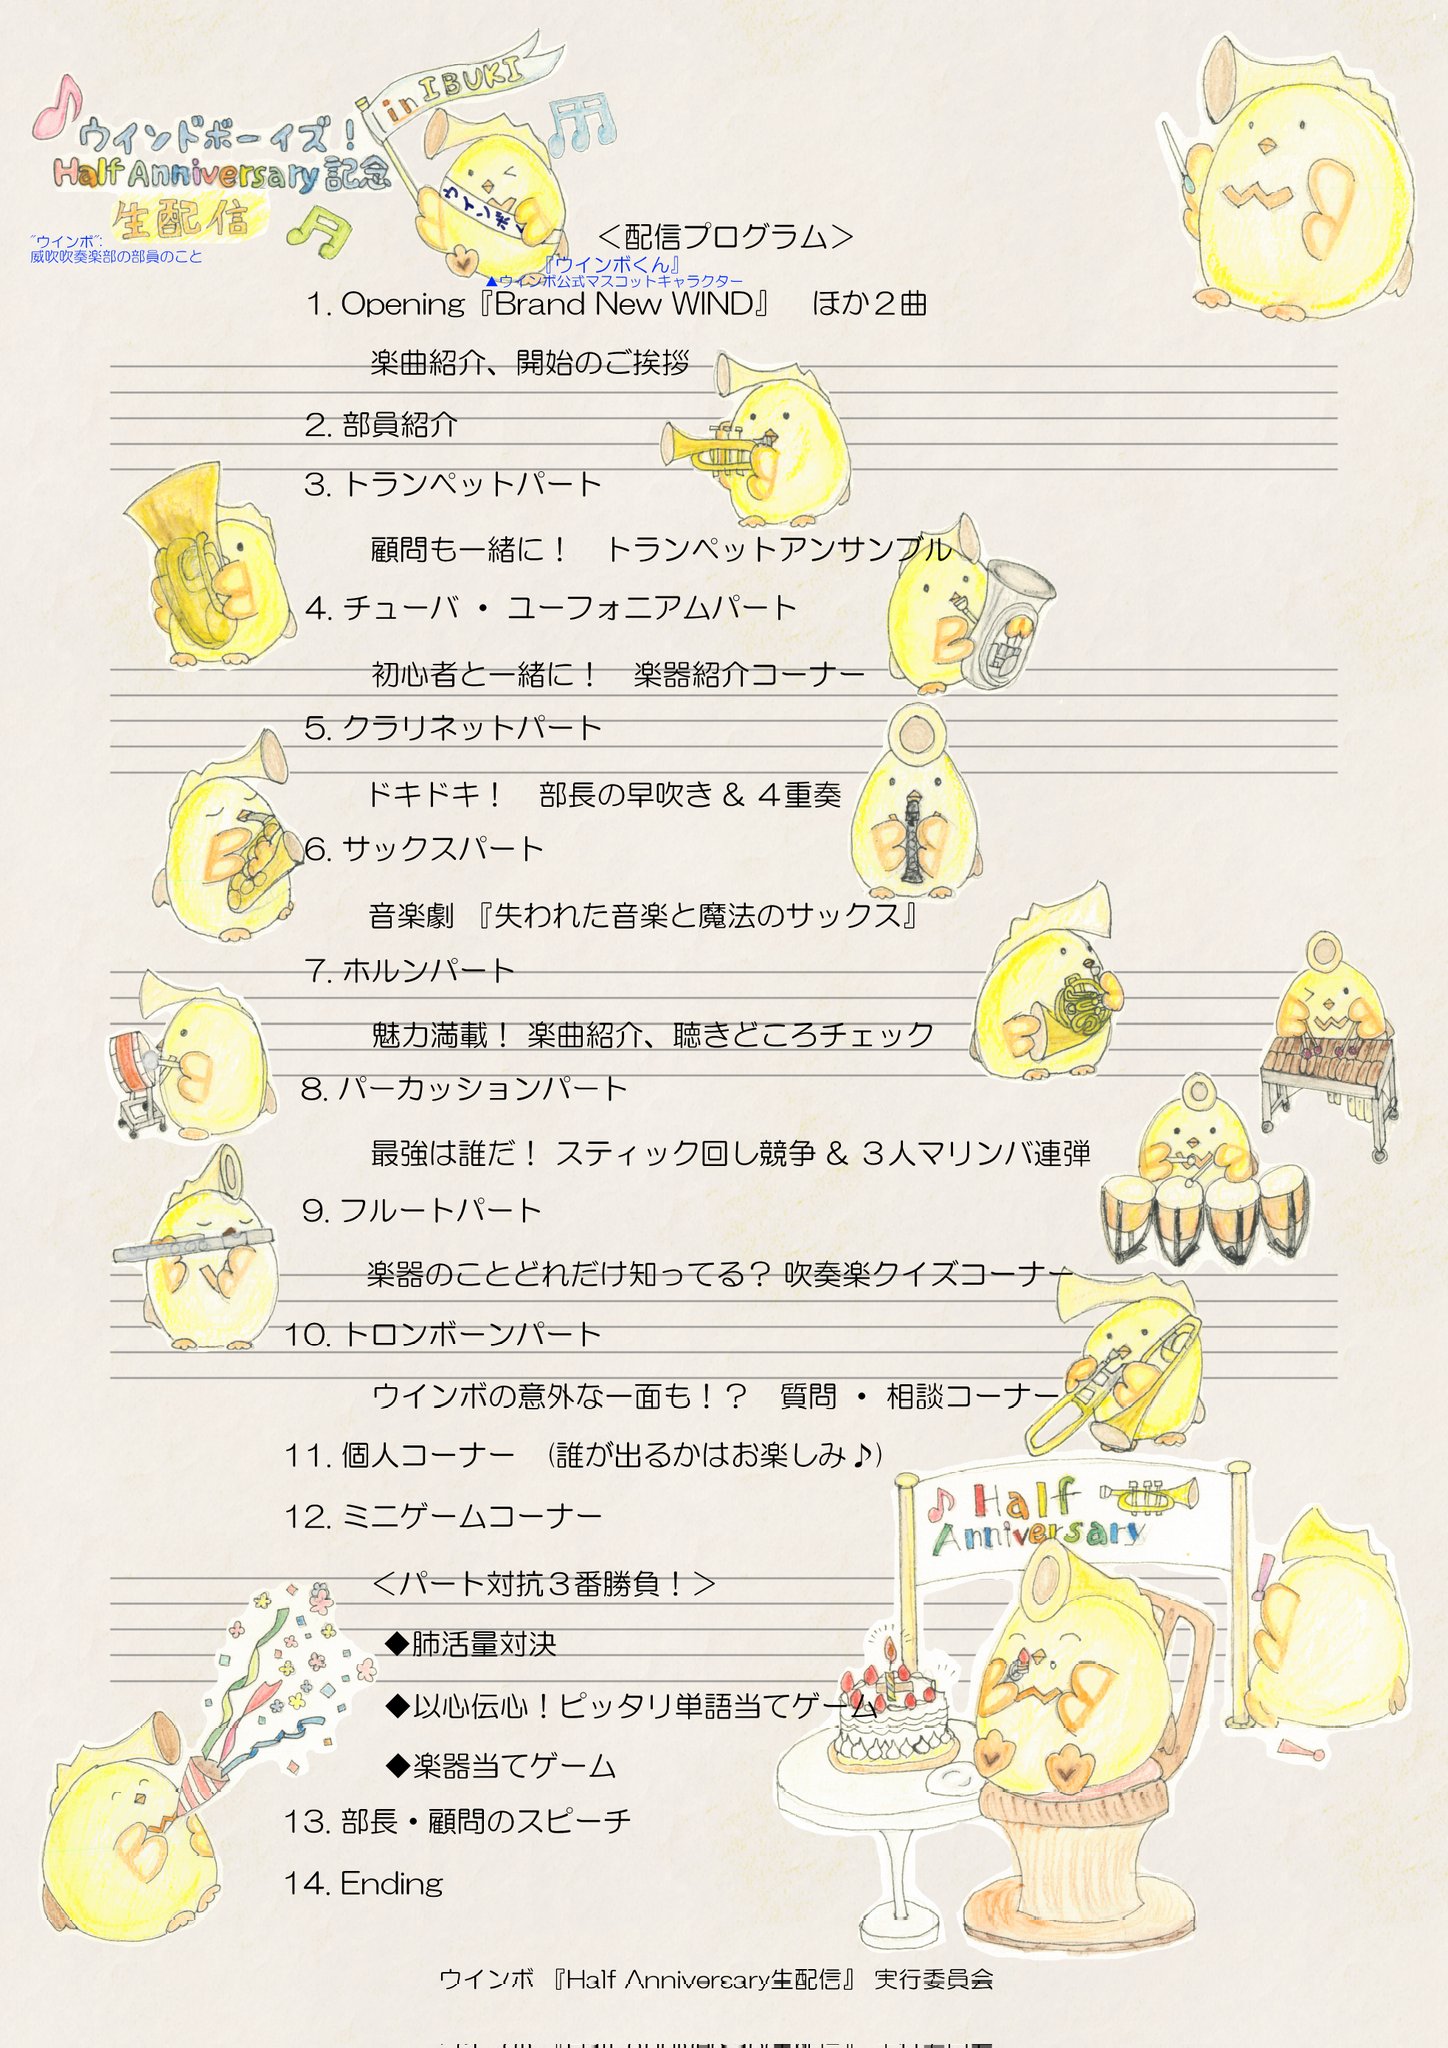 in IBUKI
ウインドボーイズ！
Half Anniversary 記念
生配信
ウインボ
"ウインボ":
威吹吹奏楽部の部員のこと
＜配信プログラム＞
『ウインボくん』
▲ウインボ公式マスコットキャラクター
1. Opening『Brand New WIND』　ほか２曲
楽曲紹介、開始のご挨拶
2. 部員紹介
3. トランペットパート
顧問も一緒に！　トランペットアンサンブル
4. チューバ ・ ユーフォニアムパート
初心者と一緒に！　楽器紹介コーナー
5. クラリネットパート
ドキドキ！　部長の早吹き & ４重奏
6. サックスパート
音楽劇 『失われた音楽と魔法のサックス』
7. ホルンパート
魅力満載！ 楽曲紹介、聴きどころチェック
8. パーカッションパート
最強は誰だ！ スティック回し競争 & ３人マリンバ連弾
9. フルートパート
楽器のことどれだけ知ってる？ 吹奏楽クイズコーナー
10. トロンボーンパート
ウインボの意外な一面も！？　質問 ・ 相談コーナー
11. 個人コーナー　(誰が出るかはお楽しみ♪)
12. ミニゲームコーナー
Half
Anniversary
＜パート対抗３番勝負！＞
◆肺活量対決
◆以心伝心！ピッタリ単語当てゲーム
◆楽器当てゲーム
13. 部長・顧問のスピーチ
14. Ending
ウインボ 『Half Anniversary生配信』 実行委員会